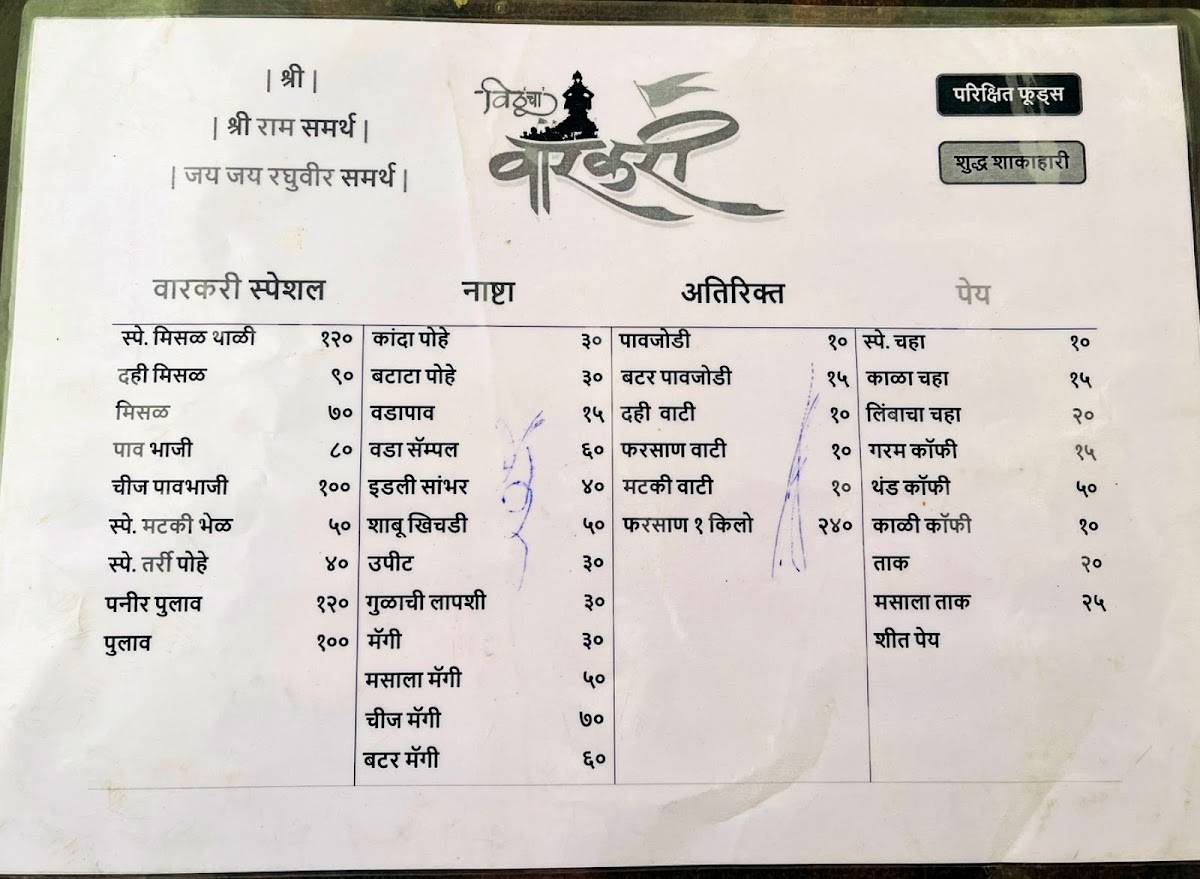 | श्री |
| श्री राम समर्थ |
| जय जय रघुवीर समर्थ |
विठूचा
वारकरी
परिक्षित फूड्स
शुद्ध शाकाहारी
वारकरी स्पेशल
स्पे. मिसळ थाळी १२०
दही मिसळ ९०
मिसळ ७०
पाव भाजी ८०
चीज पावभाजी १००
स्पे. मटकी भेळ ५०
स्पे. तर्री पोहे ४०
पनीर पुलाव १२०
पुलाव १००
नाष्टा
कांदा पोहे ३०
बटाटा पोहे ३०
वडापाव १५
वडा सॅम्पल ६०
इडली सांभर ४०
शाबू खिचडी ५०
उपीट ३०
गुळाची लापशी ३०
मॅगी ३०
मसाला मॅगी ५०
चीज मॅगी ७०
बटर मॅगी ६०
अतिरिक्त
पावजोडी १०
बटर पावजोडी १५
दही वाटी १०
फरसाण वाटी १०
मटकी वाटी १०
फरसाण १ किलो २४०
पेय
स्पे. चहा १०
काळा चहा १५
लिंबाचा चहा २०
गरम कॉफी १५
थंड कॉफी ५०
काळी कॉफी १०
ताक २०
मसाला ताक २५
शीत पेय